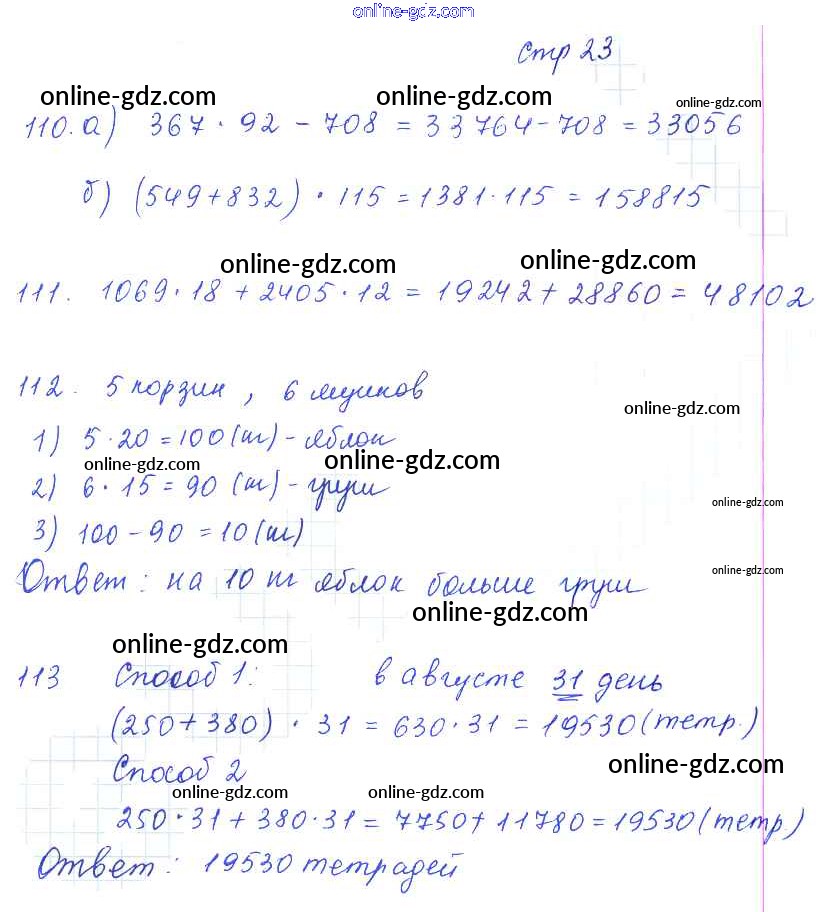 online-gdz.com
стр 23
online-gdz.com online-gdz.com online-gdz.com
110. а) 367 · 92 - 708 = 33764 - 708 = 33056
б) (549 + 832) · 115 = 1381 · 115 = 158815
online-gdz.com online-gdz.com
111. 1069 · 18 + 2405 · 12 = 19242 + 28860 = 48102
112. 5 корзин, 6 ящиков
online-gdz.com
1) 5 · 20 = 100 (кг) - яблок
online-gdz.com online-gdz.com
2) 6 · 15 = 90 (кг) - груш
online-gdz.com
3) 100 - 90 = 10 (кг)
online-gdz.com
Ответ: на 10 кг яблок больше груш
online-gdz.com
online-gdz.com
113 Способ 1: в августе 31 день
(250 + 380) · 31 = 630 · 31 = 19530 (тетр.)
Способ 2
online-gdz.com
online-gdz.com online-gdz.com
250 · 31 + 380 · 31 = 7750 + 11780 = 19530 (тетр.)
Ответ: 19530 тетрадей